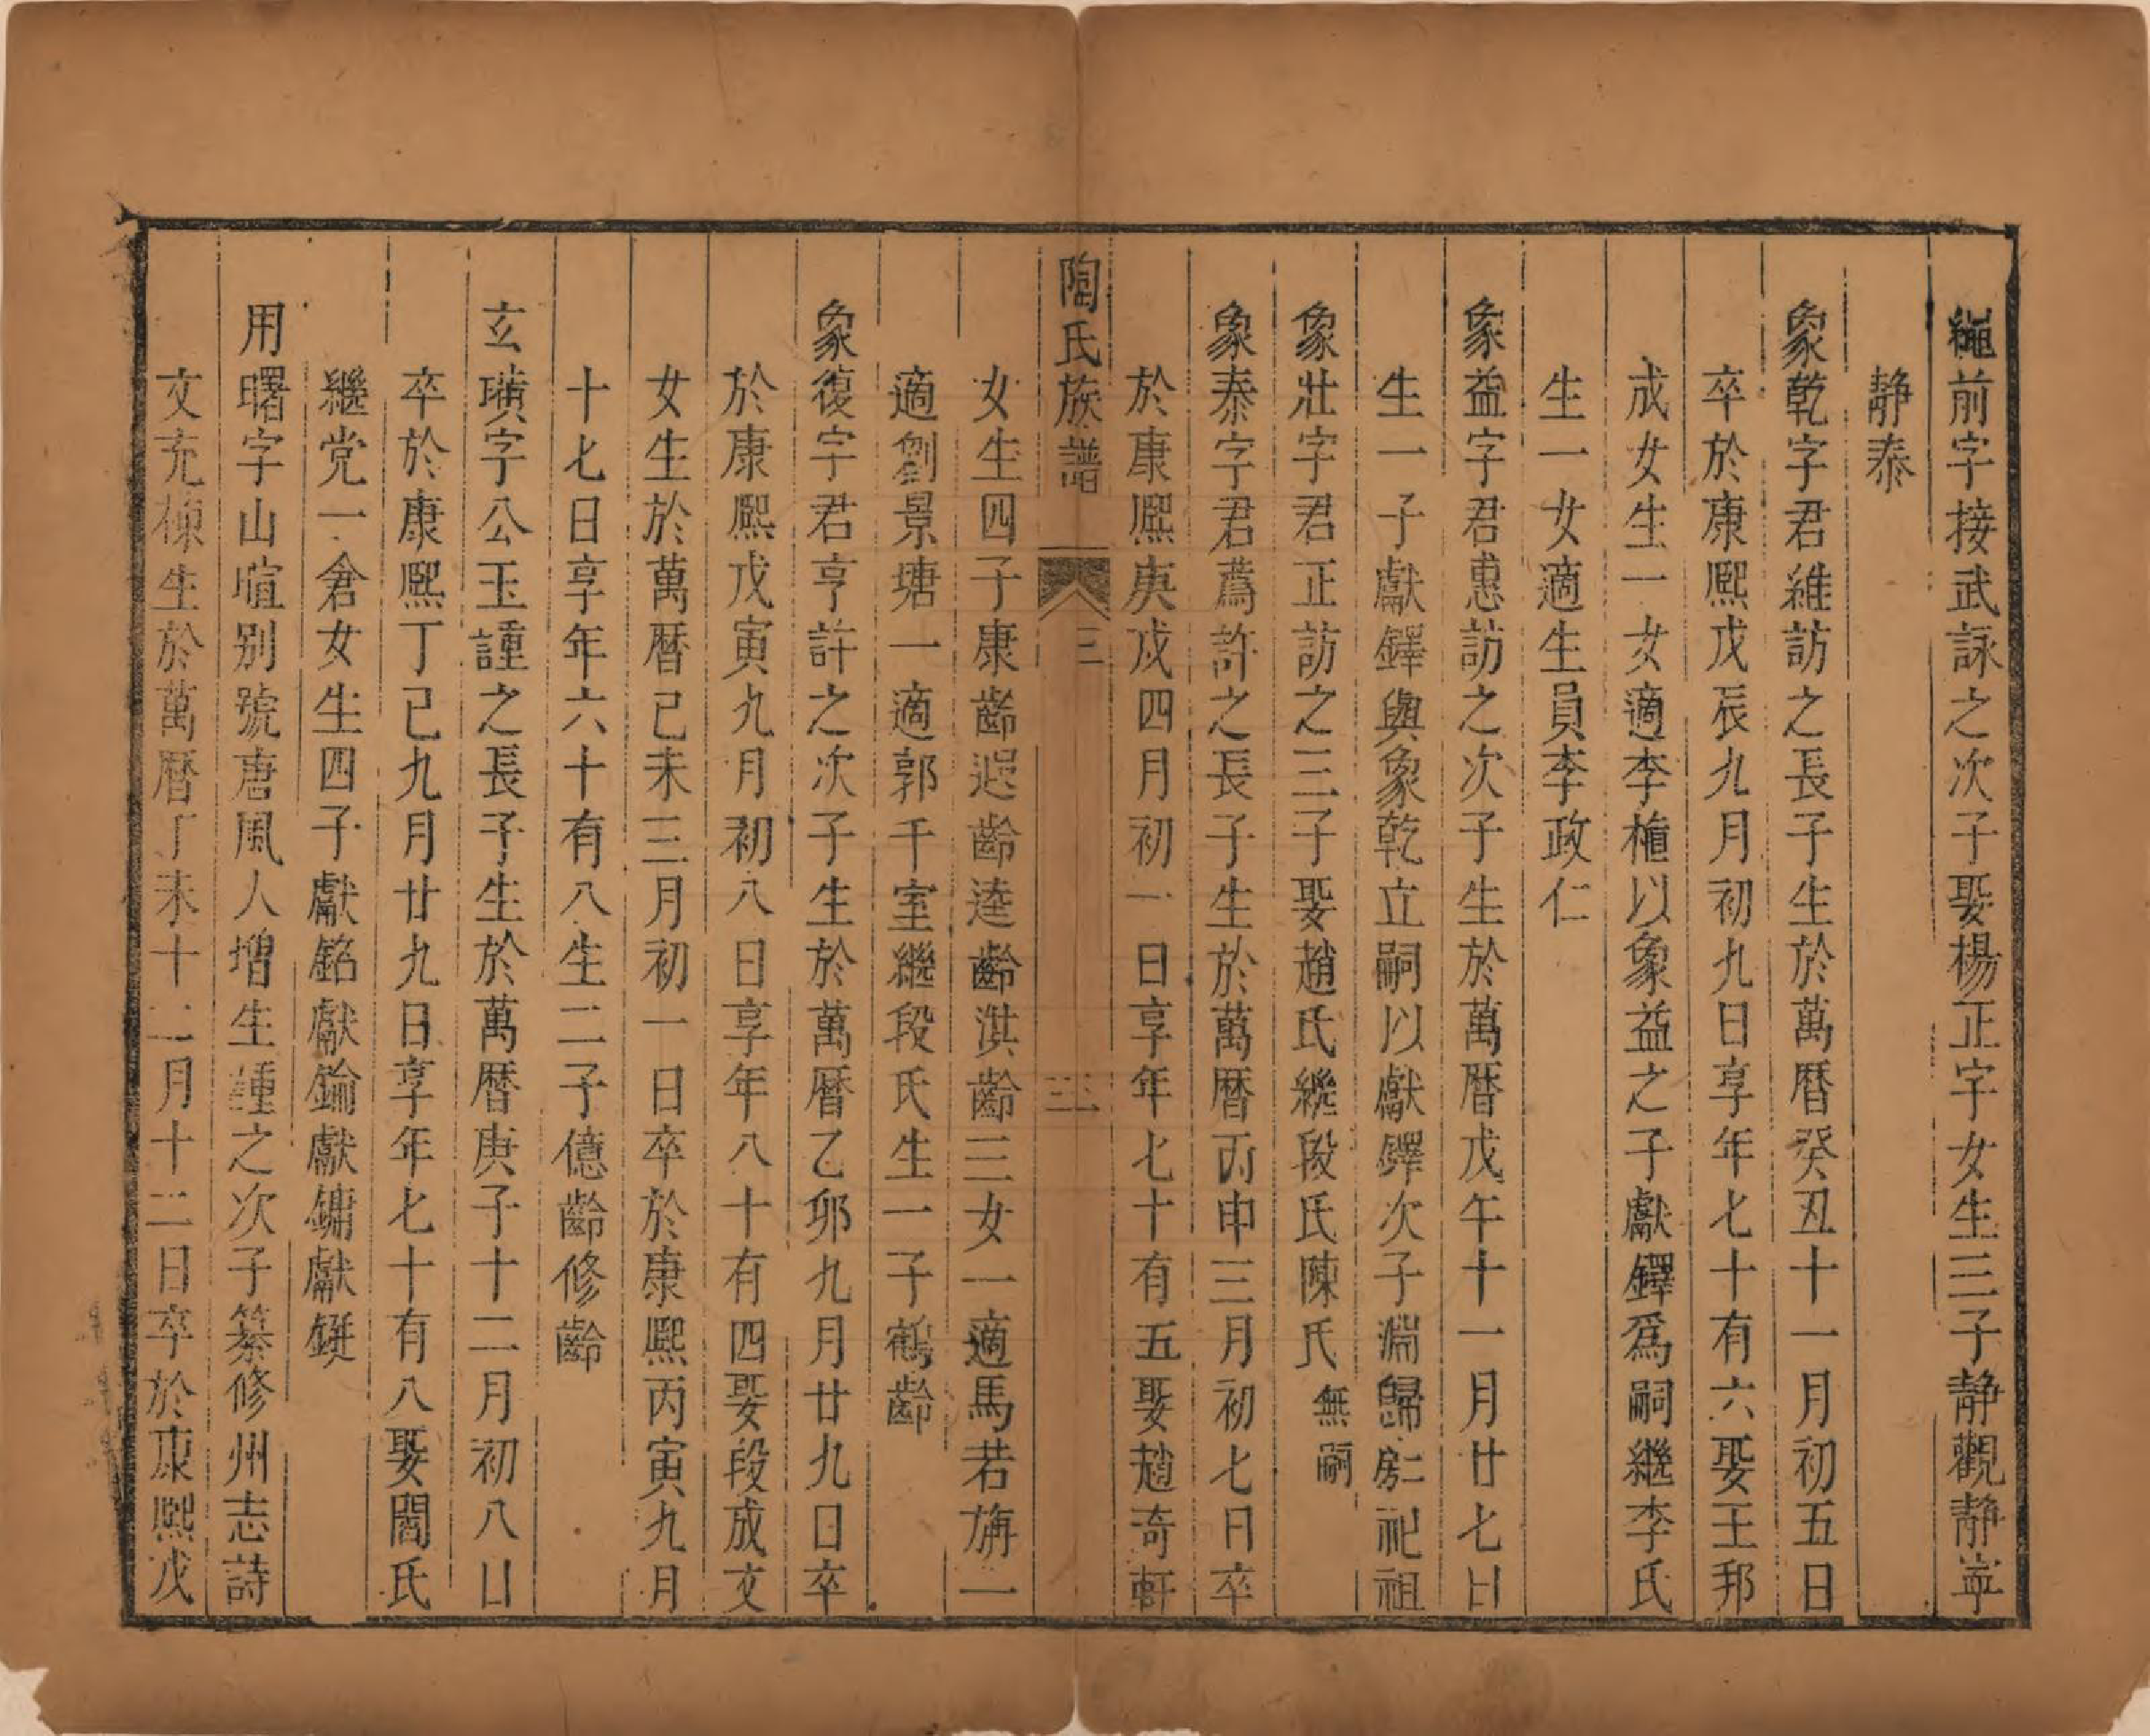 繩前字接武詠之次子娶楊正字女生三子静觀静寧
静泰
象乾字君維訪之長子生於萬曆癸丑十一月初五日
卒於康熙戊辰九月初九日享年七十有六娶王邦
成女生一女適李植以象益之子獻鐸爲嗣繼李氏
生一女適生員李政仁
象益字君惠訪之次子生於萬曆戊午十一月廿七日
生一子獻鐸與象乾立嗣以獻鐸次子淵歸房祀祖
象壯字君正訪之三子娶趙氏繼段氏陳氏無嗣
象泰字君薦許之長子生於萬曆丙申三月初七日卒
於康熙庚戌四月初一日享年七十有五娶趙奇軒
陶氏族譜 三 三
女生四子康齡遐齡逵齡淇齡三女一適馬若旃一
適劉景塘一適郭千室繼段氏生一子鶴齡
象復字君亨許之次子生於萬曆乙卯九月廿九日卒
於康熙戊寅九月初八日享年八十有四娶段成文
女生於萬曆己未三月初一日卒於康熙丙寅九月
十七日享年六十有八生二子億齡修齡
玄璜字公玉諥之長子生於萬曆庚子十二月初八日
卒於康熙丁巳九月廿九日享年七十有八娶閻氏
繼党一倉女生四子獻銘獻鑰獻鏞獻鋌
用曙字山暄别號唐風人增生諥之次子纂修州志詩
文充棟生於萬曆丁未十二月十二日卒於康熙戊